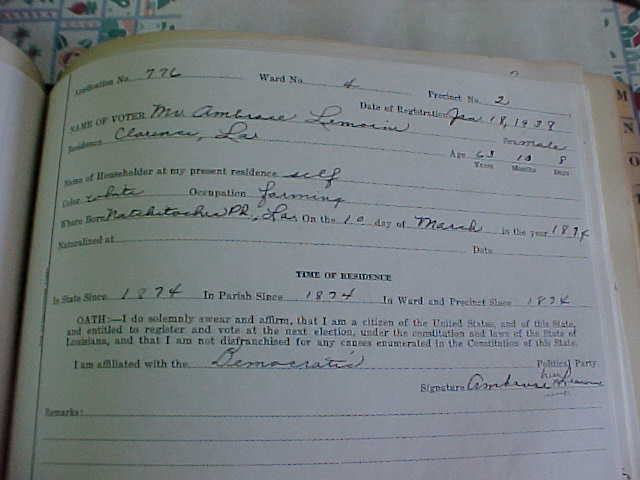 Application No. 776 Ward No. 4 Precinct No. 2
Date of Registration Jan 18, 1938
NAME OF VOTER Mr Ambrose Lemoine Sex male
Residence Clarence, La Age 63 10 8
Years Months Days
Name of Householder at my present residence self
Color white Occupation farming
Where Born Natchitoches Ph., La. On the 10 day of March in the year 1874
Naturalized at Date
TIME OF RESIDENCE
In State Since 1874 In Parish Since 1874 In Ward and Precinct Since 1874
OATH:—I do solemnly swear and affirm, that I am a citizen of the United States, and of this State,
and entitled to register and vote at the next election, under the constitution and laws of the State of
Louisiana, and that I am not disfranchised for any causes enumerated in the Constitution of this State.
I am affiliated with the Democratic Political Party
his
Signature Ambrose Lemoine
Remarks:
M
N
O